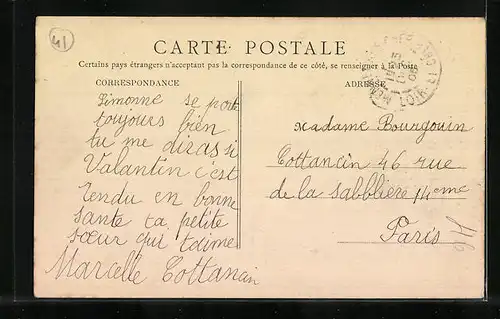 41
CARTE POSTALE
Certains pays étrangers n'acceptant pas la correspondance de ce côté, se renseigner à la Poste
CORRESPONDANCE
Simonne se porte
toujours bien
tu me diras si
Valantin c'est
rendu en bonne
sante ta petite
sœur qui t'aime
Marcelle Cottancin
ADRESSE
Madame Bourgouin
Cottancin 46 rue
de la Sabbliere 14eme
Paris